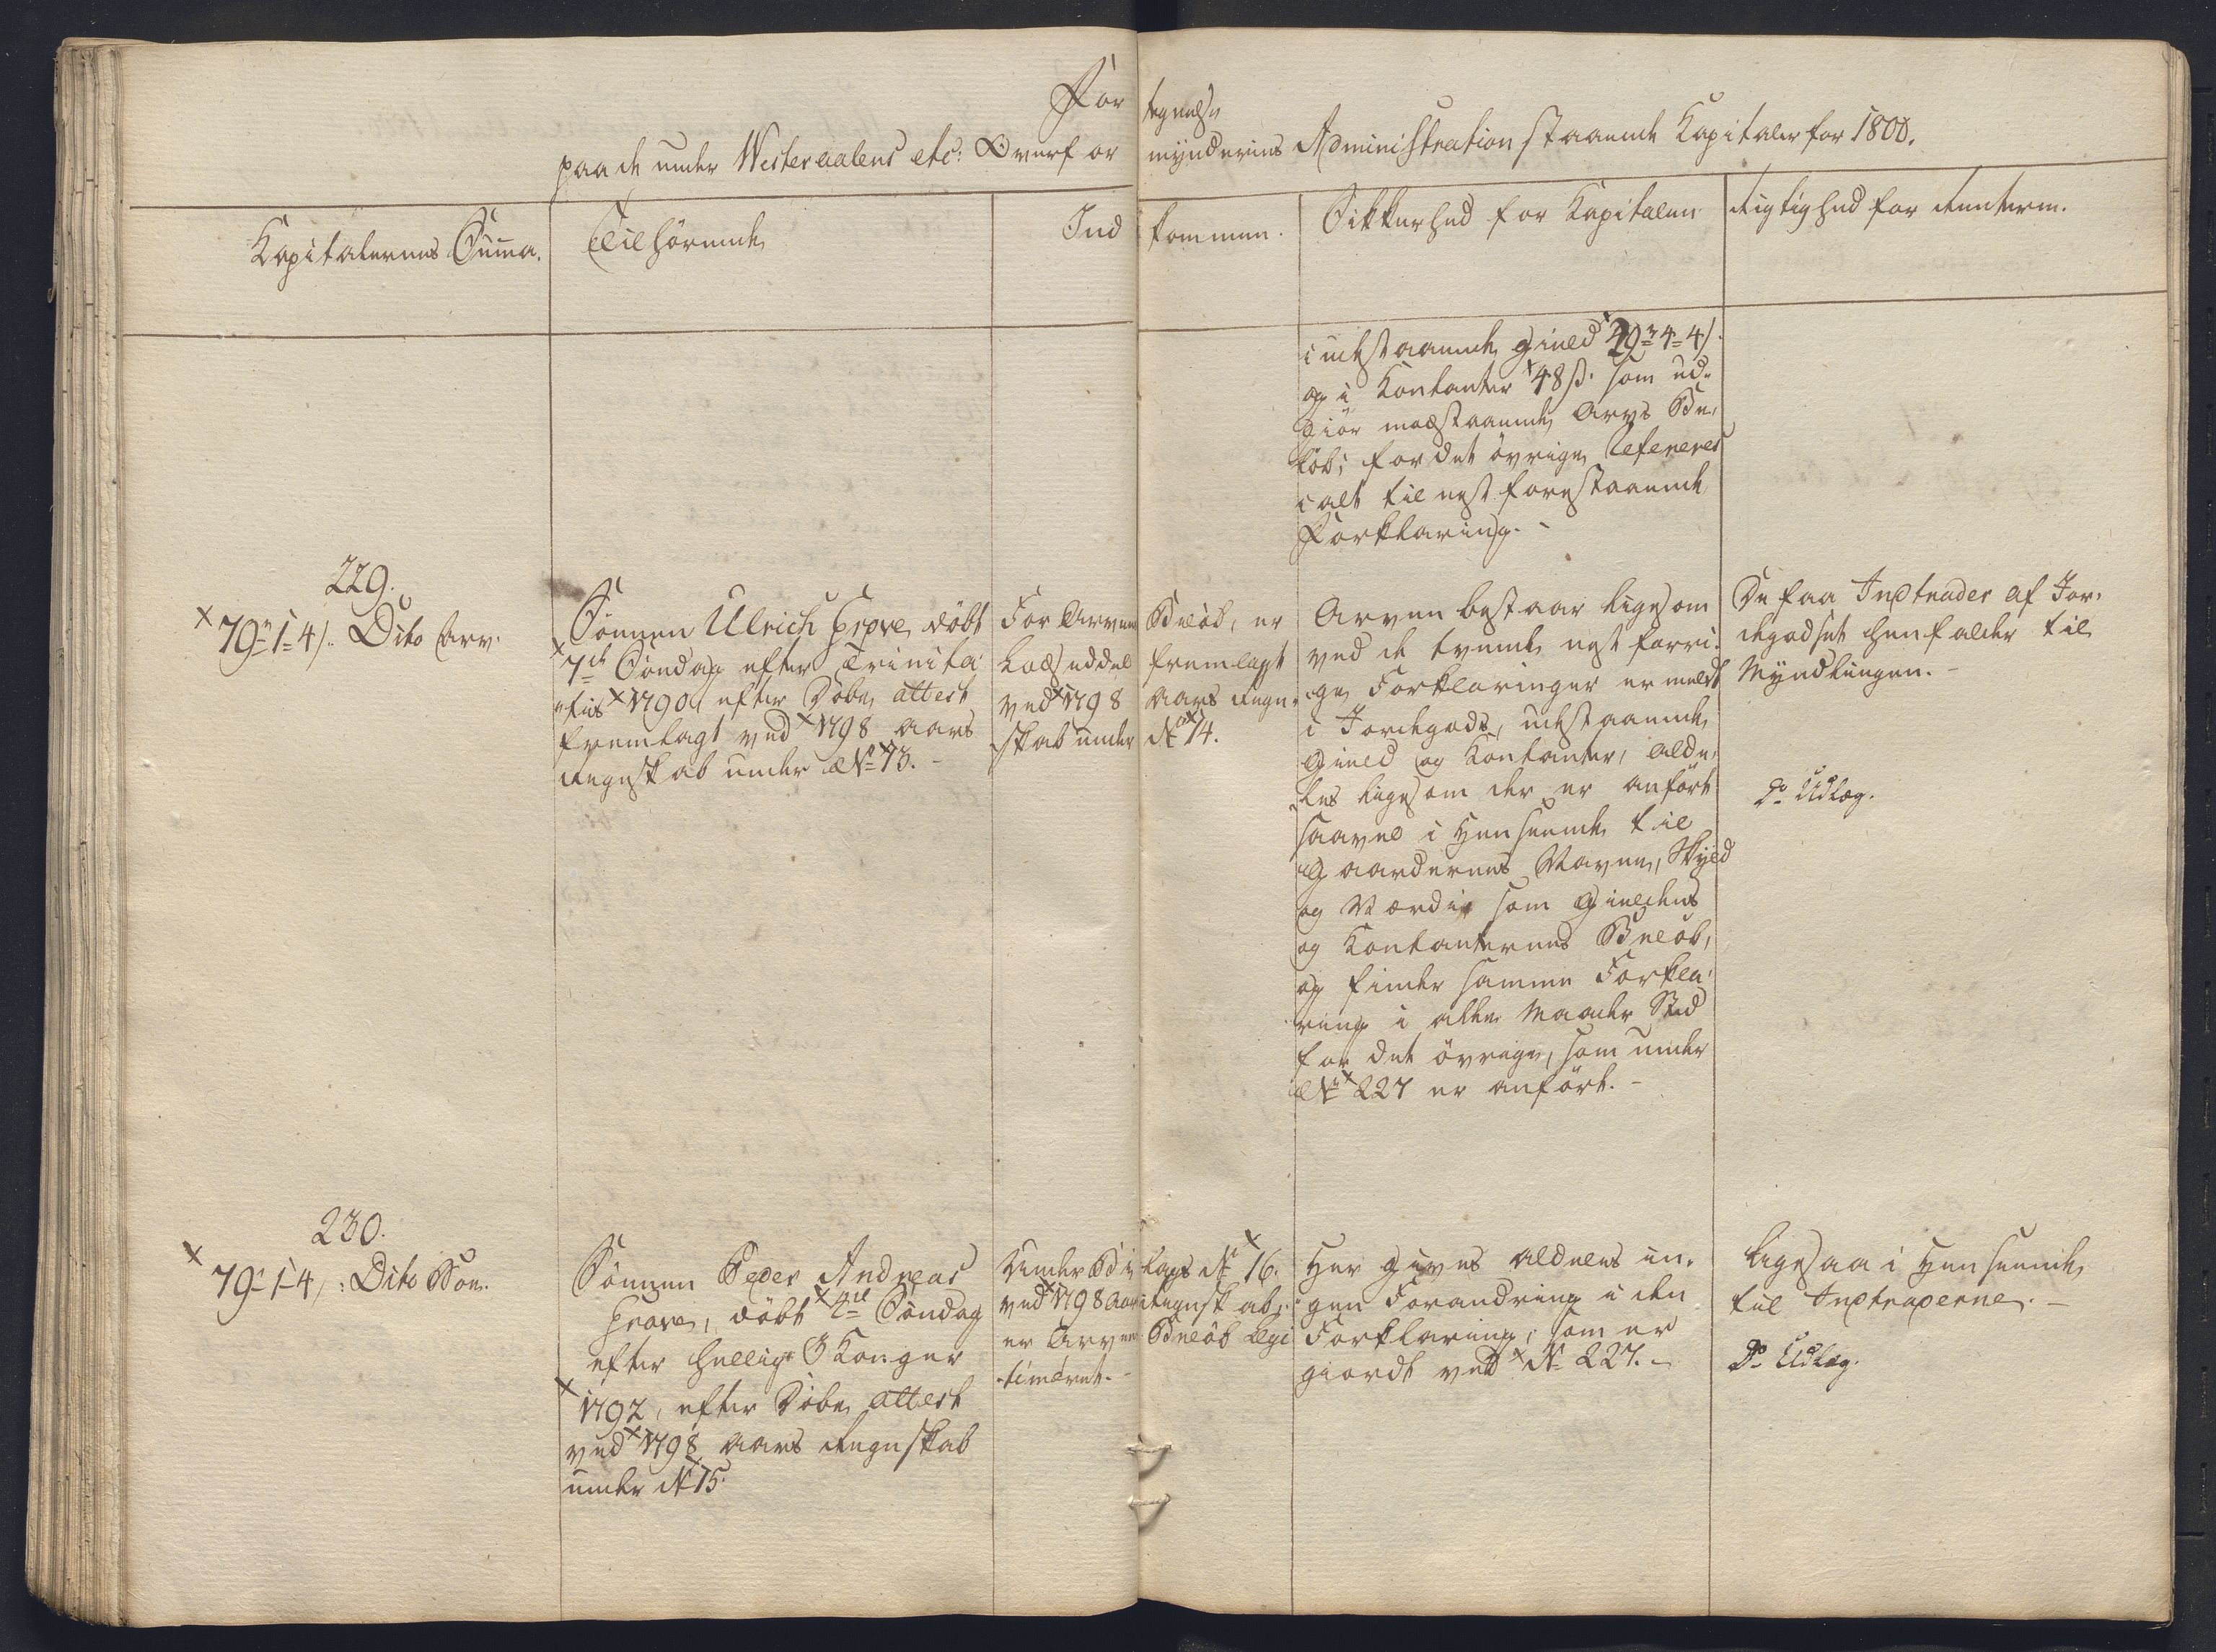 For tegnelse
paa de under Westeraalens etc: Overfor mynderies Administration staaende Kapitaler for 1800.
Kapitalernes Suma.
Tilhörende
Ind kommen.
Sikkerhed for Kapitalen
Rigtighed for Renterne.
i udestaaende Gield 29 „ 4 „ 4 /.
og i Kontanter 48 ß. som ud-
giör modstaaende Arvs Be-
löb; for det övrige refereres
i alt til nest forestaaende
Forklaring. -
229.
79 „ 1 „ 4 /. Dito Arv.
Sönnen Ulrich Grove, döbt
7de Söndag efter Trinita-
tis 1790, efter Döbe attest
fremlagt ved 1798 Aars
Regnskab under No 73. -
For Arvens Belöb, er
Lodseddel fremlagt
ved 1798 Aars Regn-
skab under No 74.
Arven bestaar ligesom
ved de tvende nest forri-
ge Forklaringer er meldt
i Jordegods, udestaaende
Gield og Kontanter, alde-
les ligesom der er anfört
saavel i Henseende til
Gaardernes Navne, Skyld
og Værdie som Gieldens
og Kontanternes Belöb,
og finder samme Forkla-
ring i alle Maader Sted
for det övrige, som under
No 227 er anfört. -
De faa Indtrader af Jor-
degodset henfalder til
Myndlingen. -
Do Udlæg.
230.
79 „ 1 „ 4 /: Dito Son.
Sönnen Peder Andreas
Grove, döbt 2de Söndag
efter hellig 3 Konger
1792, efter Döbe attest
ved 1798 Aars Regnskab
under No 75.
Under Bi lage No 76.
ved 1798 Aars Regnskab,
er Arvens Belöb legi
timeret. -
Her gives aldeles in-
gen Forandring i den
Forklaring, som er
giordt ved No 227. -
Ligesaa i Henseende
til Indtraderne. -
Do Udlæg.